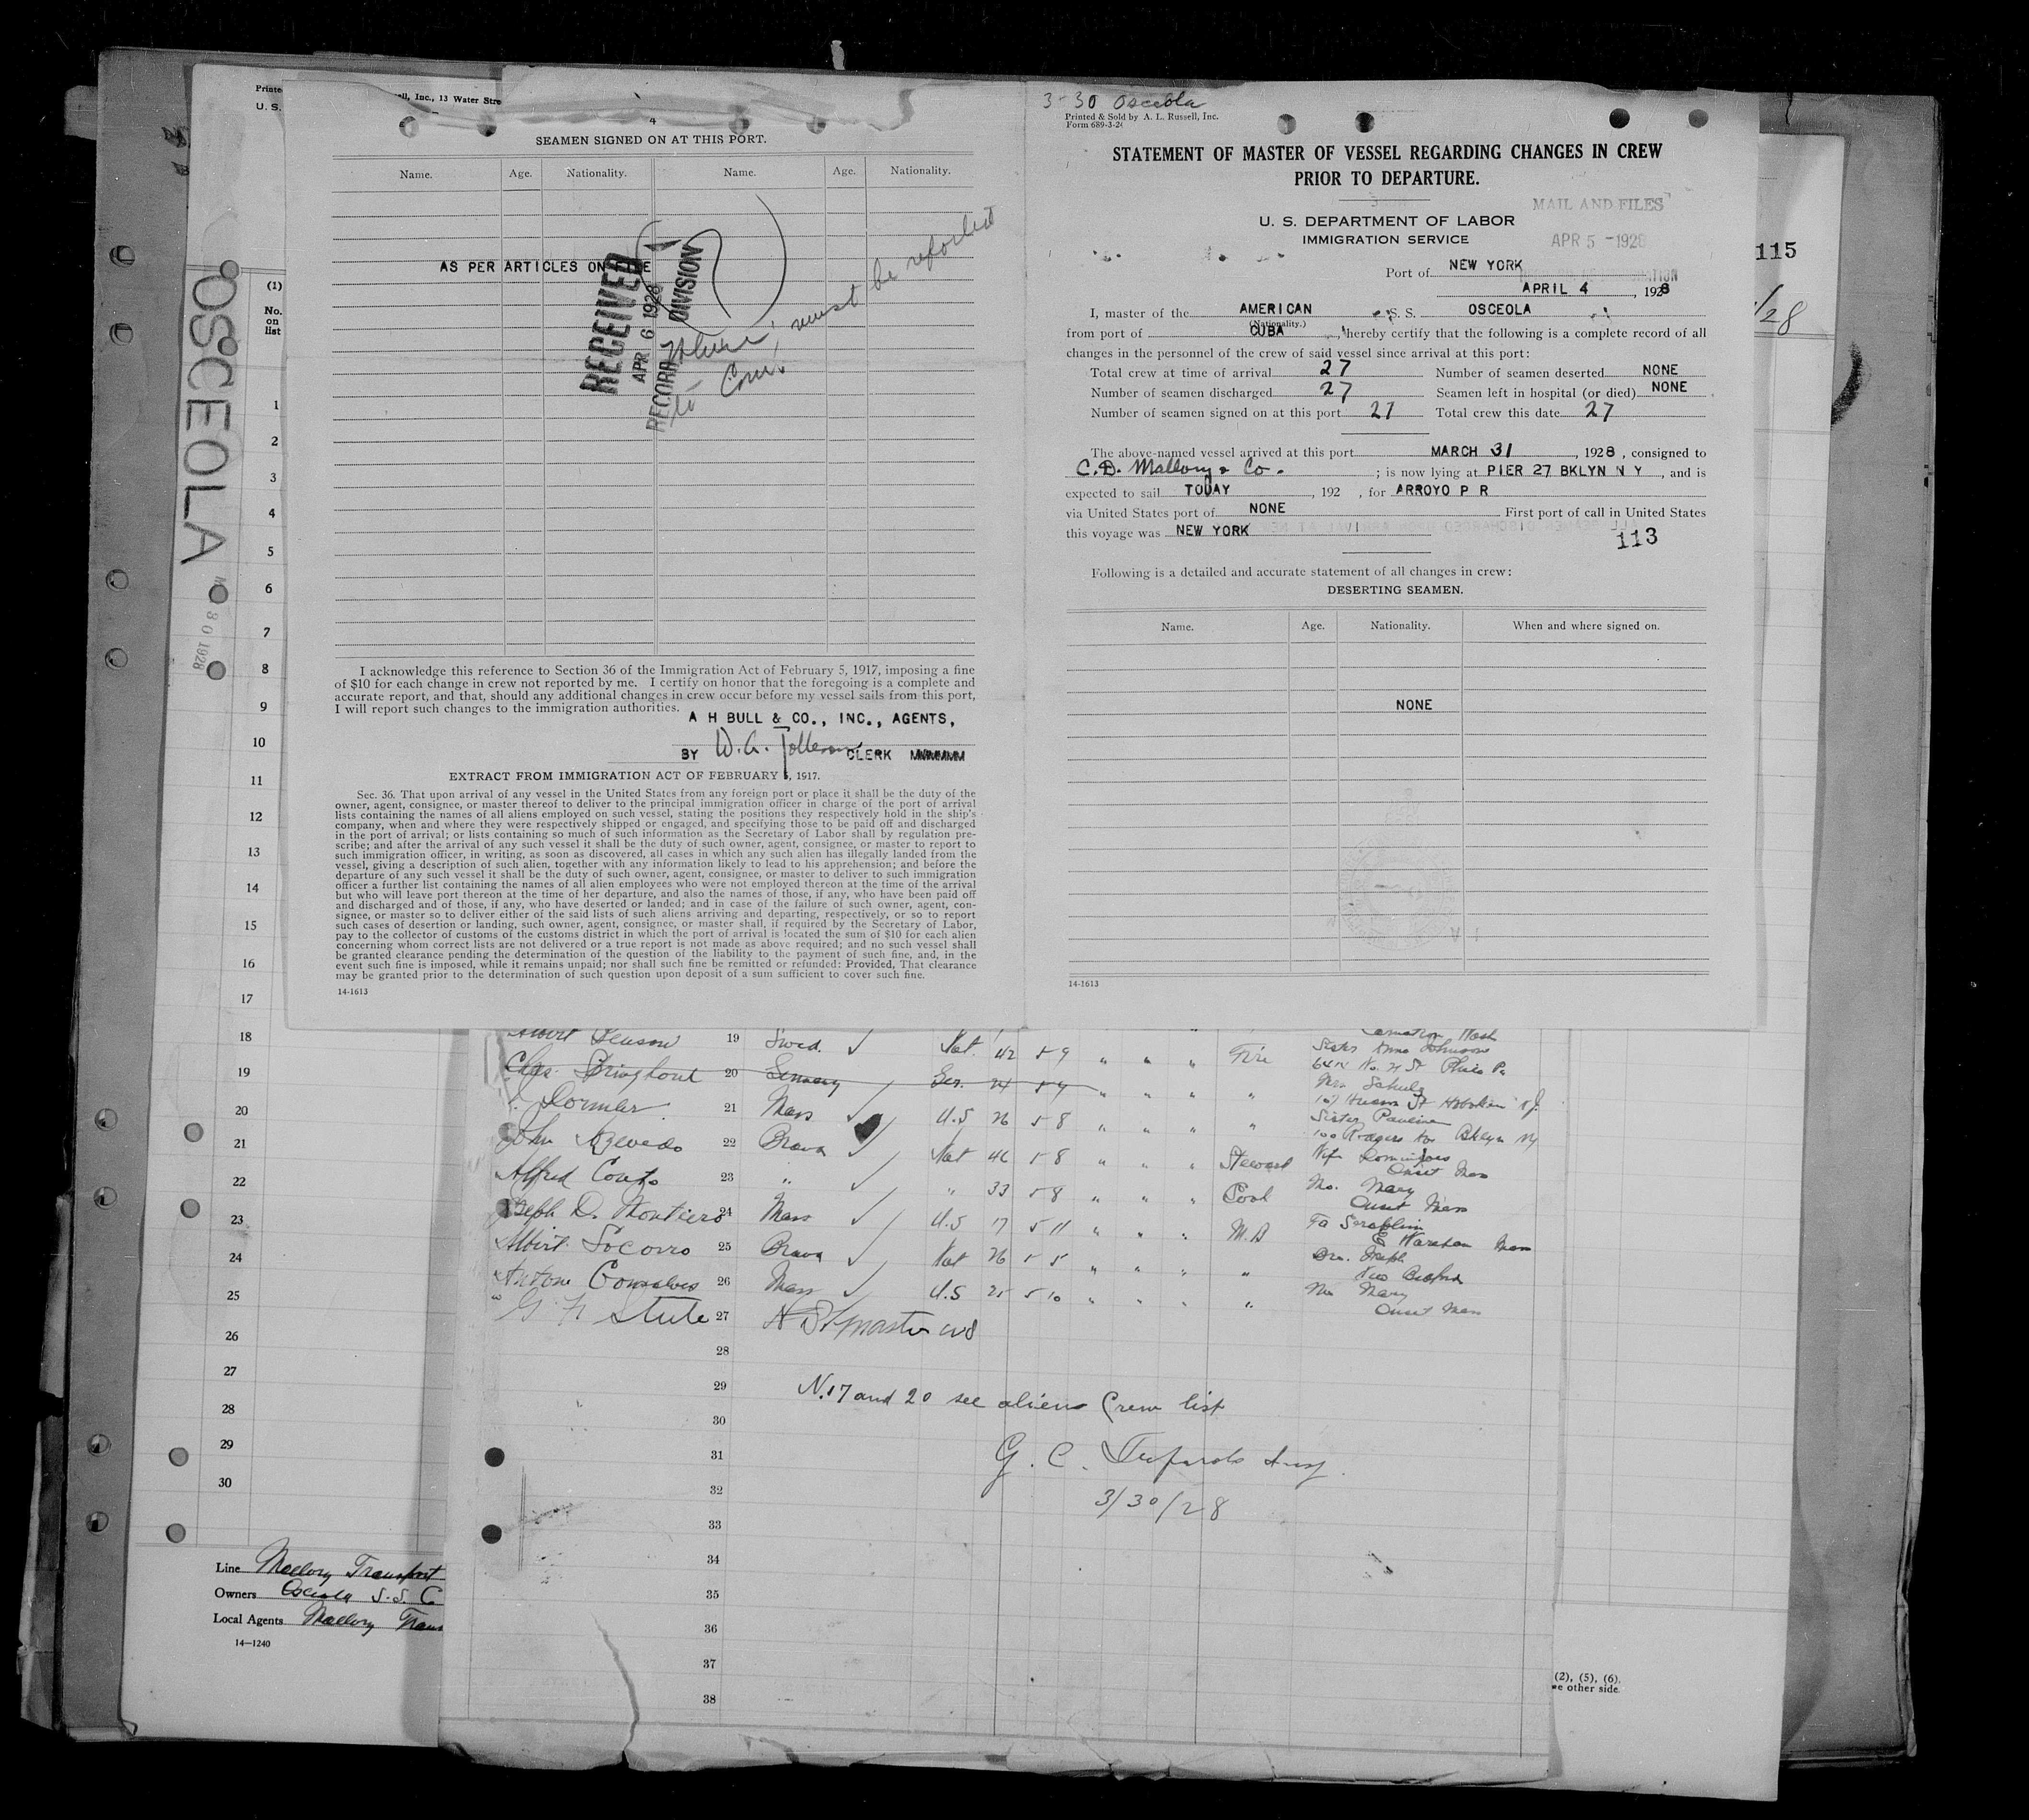 Printe
ell, Inc., 13 Water Stre
U. S.
4
SEAMEN SIGNED ON AT THIS PORT.
Name. Age. Nationality. Name. Age. Nationality.
AS PER ARTICLES ON
RECEIVED
APR 6 1928
RECORD DIVISION
must be reported
to Com.
I acknowledge this reference to Section 36 of the Immigration Act of February 5, 1917, imposing a fine
of $10 for each change in crew not reported by me. I certify on honor that the foregoing is a complete and
accurate report, and that, should any additional changes in crew occur before my vessel sails from this port,
I will report such changes to the immigration authorities.
A H BULL & CO., INC., AGENTS,
BY W. A. CLERK
EXTRACT FROM IMMIGRATION ACT OF FEBRUARY 5, 1917.
Sec. 36. That upon arrival of any vessel in the United States from any foreign port or place it shall be the duty of the
owner, agent, consignee, or master thereof to deliver to the principal immigration officer in charge of the port of arrival
lists containing the names of all aliens employed on such vessel, stating the positions they respectively hold in the ship's
company, when and where they were respectively shipped or engaged, and specifying those to be paid off and discharged
in the port of arrival; or lists containing so much of such information as the Secretary of Labor shall by regulation pre-
scribe; and after the arrival of any such vessel it shall be the duty of such owner, agent, consignee, or master to report to
such immigration officer, in writing, as soon as discovered, all cases in which any such alien has illegally landed from the
vessel, giving a description of such alien, together with any information likely to lead to his apprehension; and before the
departure of any such vessel it shall be the duty of such owner, agent, consignee, or master to deliver to such immigration
officer a further list containing the names of all alien employees who were not employed thereon at the time of the arrival
but who will leave port thereon at the time of her departure, and also the names of those, if any, who have been paid off
and discharged and of those, if any, who have deserted or landed; and in case of the failure of such owner, agent, con-
signee, or master so to deliver either of the said lists of such aliens arriving and departing, respectively, or so to report
such cases of desertion or landing, such owner, agent, consignee, or master shall, if required by the Secretary of Labor,
pay to the collector of customs of the customs district in which the port of arrival is located the sum of $10 for each alien
concerning whom correct lists are not delivered or a true report is not made as above required; and no such vessel shall
be granted clearance pending the determination of the question of the liability to the payment of such fine, and, in the
event such fine is imposed, while it remains unpaid; nor shall such fine be remitted or refunded: Provided, That clearance
may be granted prior to the determination of such question upon deposit of a sum sufficient to cover such fine.
14-1613
3-30 Osceola
Printed & Sold by A. L. Russell, Inc.
Form 689-3-2
STATEMENT OF MASTER OF VESSEL REGARDING CHANGES IN CREW
PRIOR TO DEPARTURE.
MAIL AND FILES
APR 5 - 1928
U. S. DEPARTMENT OF LABOR
IMMIGRATION SERVICE
Port of NEW YORK
APRIL 4, 1928
I, master of the AMERICAN S. S. OSCEOLA
(Nationality.)
from port of CUBA, hereby certify that the following is a complete record of all
changes in the personnel of the crew of said vessel since arrival at this port:
Total crew at time of arrival 27 Number of seamen deserted NONE
Number of seamen discharged 27 Seamen left in hospital (or died) NONE
Number of seamen signed on at this port 27 Total crew this date 27
The above-named vessel arrived at this port MARCH 31, 1928, consigned to
C. D. Mallory & Co. ; is now lying at PIER 27 BKLYN N Y, and is
expected to sail TODAY, 192 , for ARROYO P R
via United States port of NONE First port of call in United States
this voyage was NEW YORK
113
Following is a detailed and accurate statement of all changes in crew:
DESERTING SEAMEN.
Name. Age. Nationality. When and where signed on.
NONE
14-1613
115
/28
OSCEOLA
30 1928
(1)
No.
on
list
1
2
3
4
5
6
7
8
9
10
11
12
13
14
15
16
17
18
19
20
21
22
23
24
25
26
27
28
29
30
Albert Benson 19 Swed. Nat. 42 5 9 " " " Fire Sister Anna Johnson
Chas. 20 Germany Ger. 24 5 9 " " " " Mrs. Schulz
21 Mass U.S 26 5 8 " " " " Sister Pauline
John Azevedo 22 Brava Nat 46 5 8 " " " Steward Wife
Onset Mass
Alfred Couto 23 " " 33 5 8 " " " Cook Mo. Mary
Onset Mass
Joseph D. Montiero 24 Mass U.S 17 5 11 " " " M.B Fa
E Wareham Mass
Albert Socorro 25 Brava Nat 26 5 5 " " " " Bro. Joseph
New Bedford
Antone Gonsalves 26 Mass U.S 21 5 10 " " " " Mo Mary
Onset Mass
27
28
29 N. 17 and 20 see aliens Crew list
30
31 G. C.
32 3/30/28
33
34
35
36
37
38
Line Mallory Transport
Owners Osceola S.S. C
Local Agents Mallory Trans
14—1240
(2), (5), (6).
e other side.